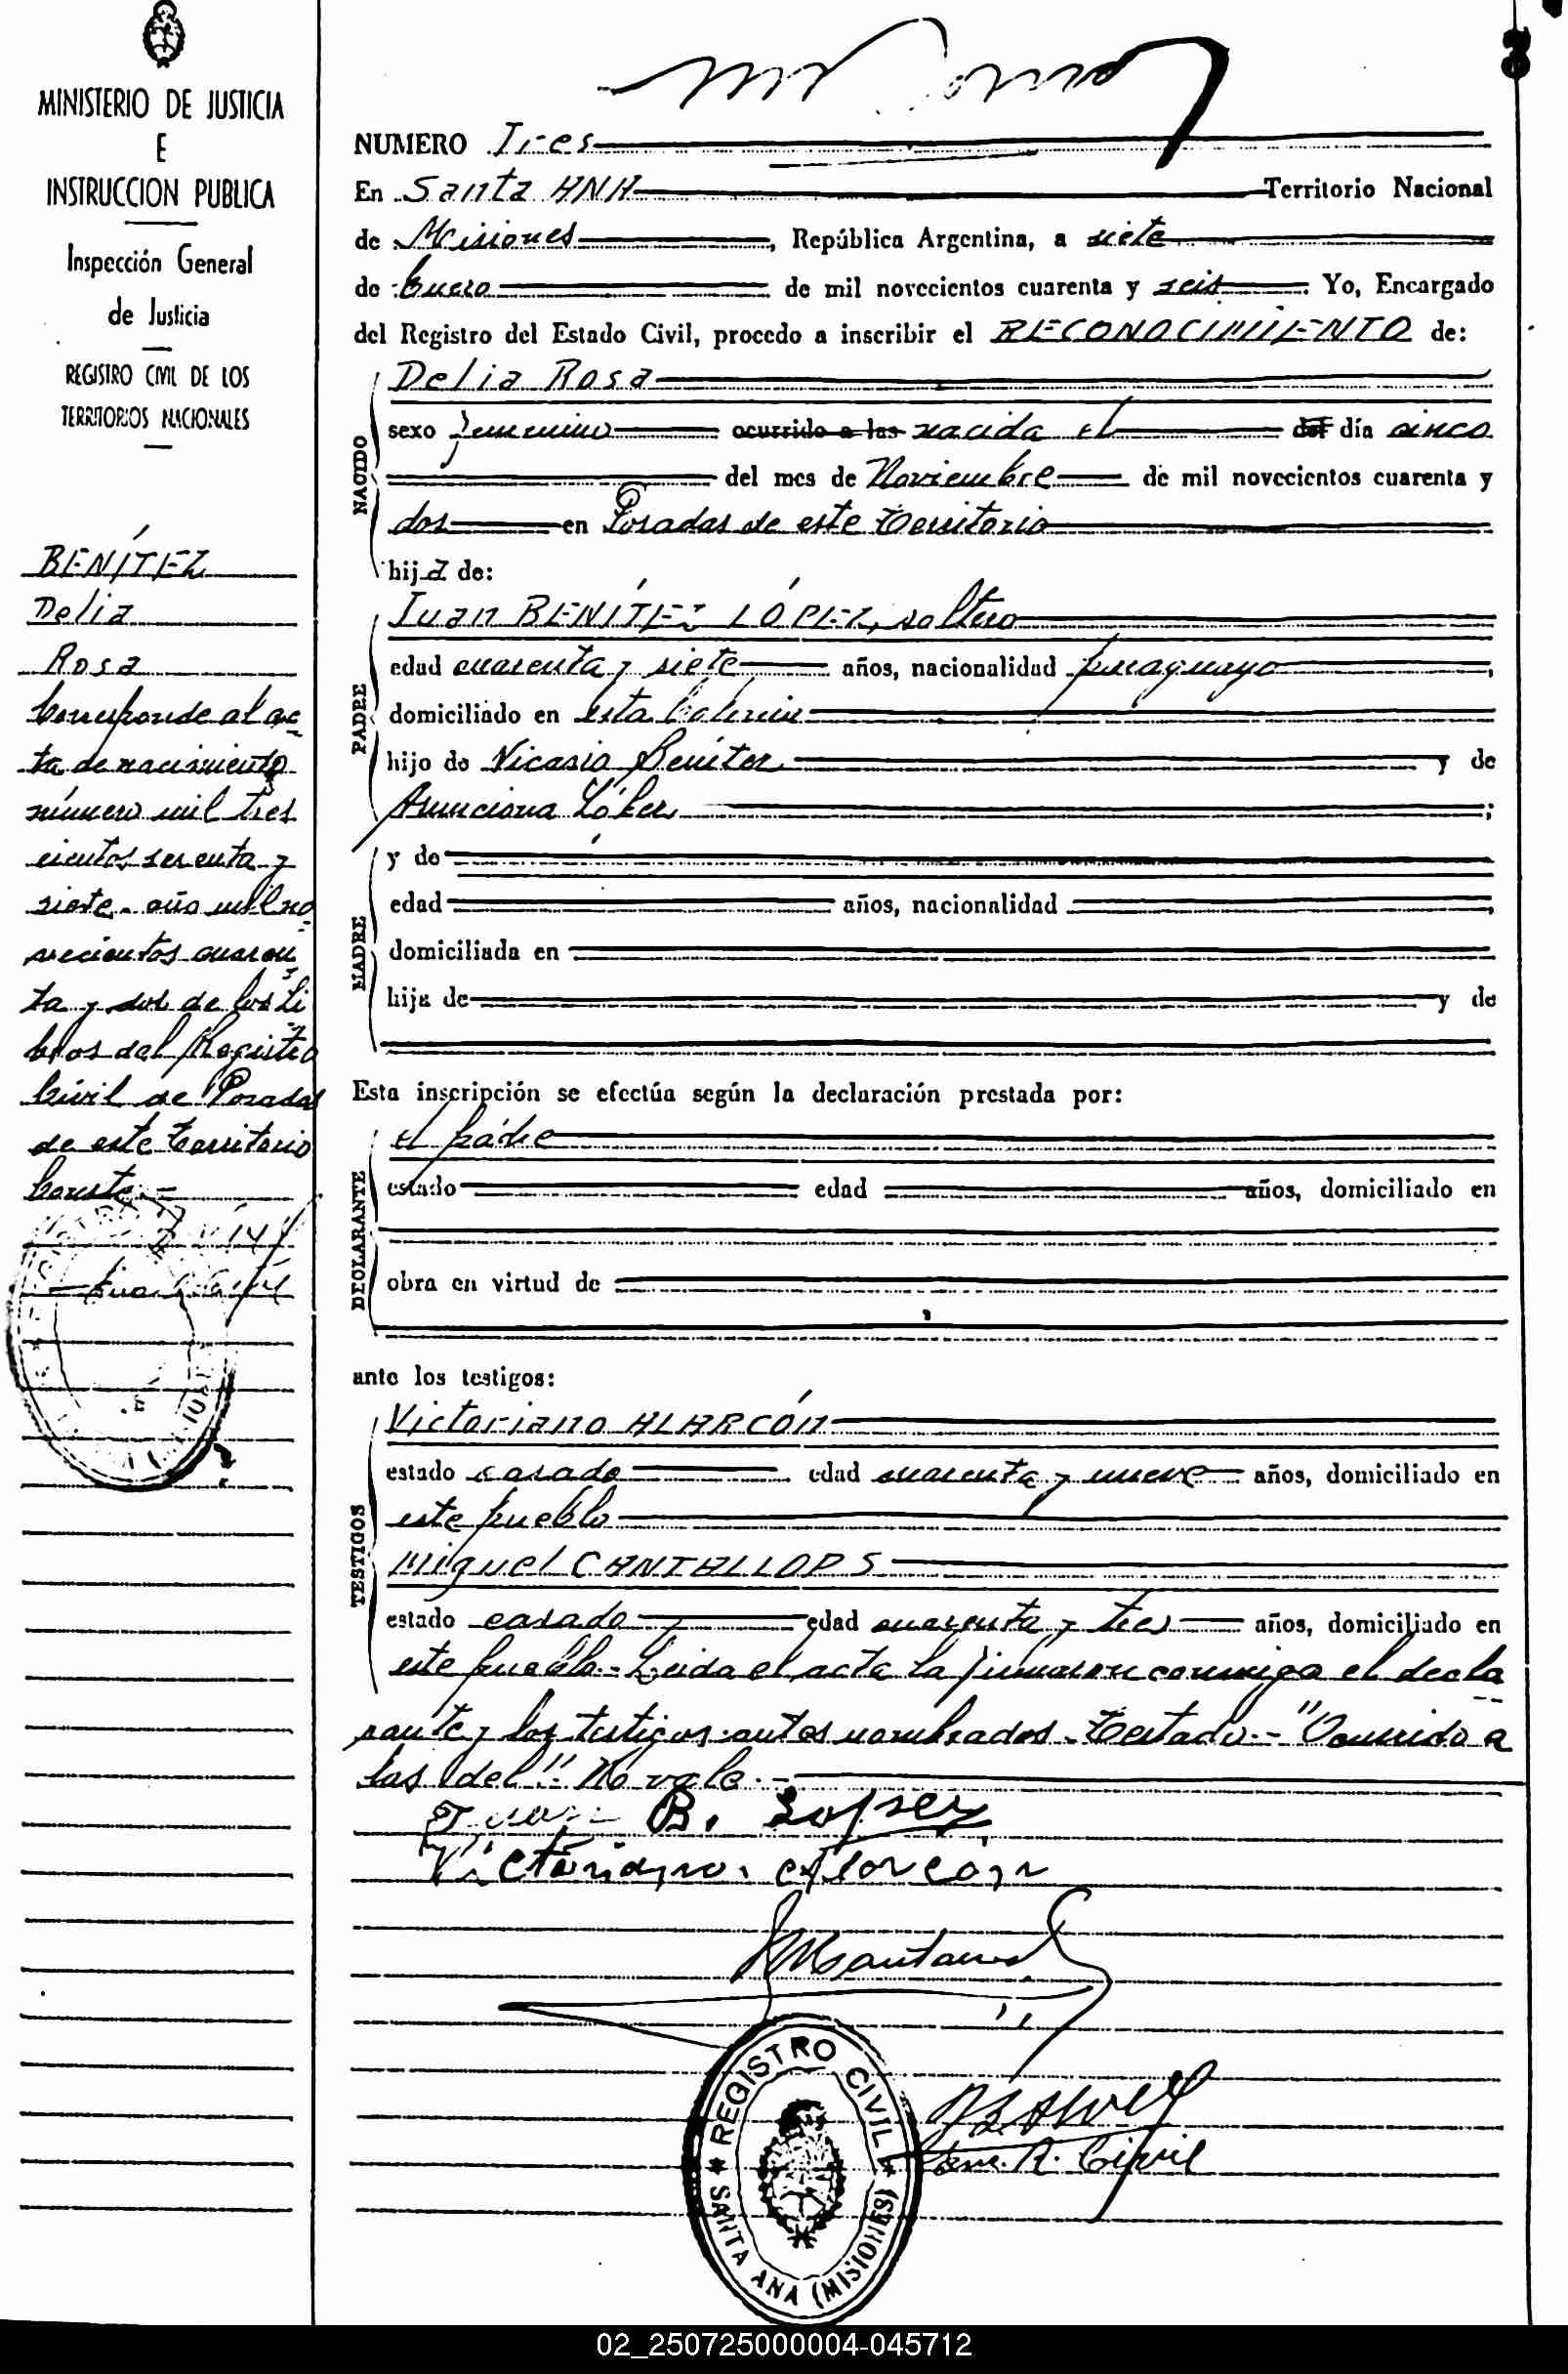 MINISTERIO DE JUSTICIA
E
INSTRUCCION PUBLICA
Inspección General
de Justicia
REGISTRO CIVIL DE LOS
TERRITORIOS NACIONALES
BENÍTEZ
Delia
Rosa
Corresponde al ac
ta de nacimiento
número mil tres
cientos sesenta y
siete - año mil no
vecientos cuaren
ta y dos de los Li
bros del Registro
Civil de Posadas
de este Territorio
Conste.-
3
NUMERO Tres
En Santa ANA Territorio Nacional
de Misiones, República Argentina, a siete
de Enero de mil novecientos cuarenta y seis. Yo, Encargado
del Registro del Estado Civil, procedo a inscribir el RECONOCIMIENTO de:
NACIDO
Delia Rosa
sexo femenino ocurrido a las nacida el del día cinco
del mes de Noviembre de mil novecientos cuarenta y
dos en Posadas de este Territorio
hija de:
PADRE
Juan BENÍTEZ LÓPEZ, soltero
edad cuarenta y siete años, nacionalidad paraguayo,
domiciliado en esta Colonia
hijo de Nicasio Benítez y de
Asunciona López;
MADRE
y de
edad años, nacionalidad,
domiciliada en
hija de y de
Esta inscripción se efectúa según la declaración prestada por:
DECLARANTE
el padre
estado edad años, domiciliado en
obra en virtud de
ante los testigos:
TESTIGOS
Victoriano ALARCÓN
estado casado edad cuarenta y nueve años, domiciliado en
este pueblo
Miguel CANTALLOPS
estado casado edad cuarenta y tres años, domiciliado en
este pueblo.- Leida el acta la firmaron conmigo el decla
rante y los testigos antes nombrados. Testado.- "Ocurrido a
las del" No vale.-
Juan B. Lopez
Victoriano. Alarcón
Enc. R. Civil
REGISTRO CIVIL
SANTA ANA (MISIONES)
02_250725000004-045712